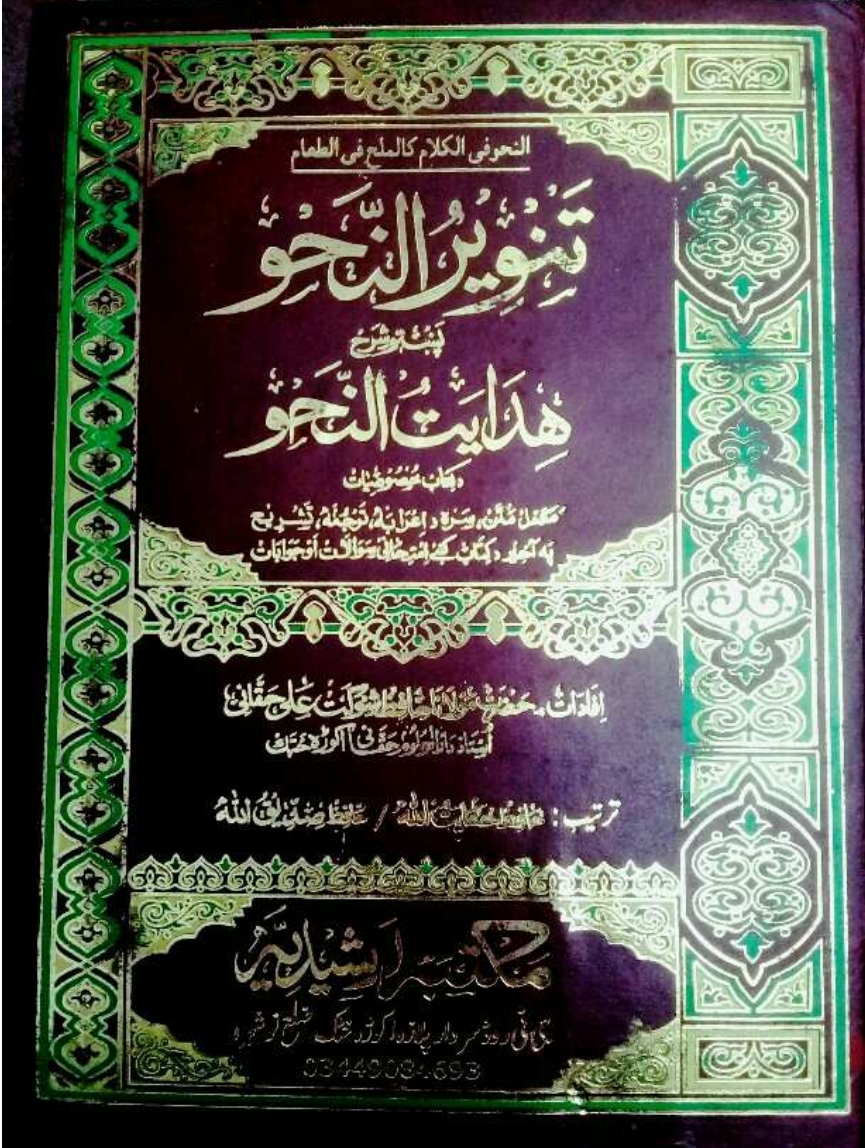 النحو فی الکلام کالملح فی الطعام
تَنوِیرُ النَّحو
پښتو شرح
هِدَایَتُ النَّحو
د کتاب خصوصیات
مکمل متن، سره د اعرابه، ترجمه، تشریح
په آخر د کتاب کښ امتحانی سوالات او جوابات
افادات۔ حضرت مولانا حافظ شوکت علی حقانی
استاذ دارالعلوم حقانیه اکوڑه خټک
ترتیب: حافظ الله / حافظ صدیق الله
مکتبه رشیدیه
جی ٹی روڈ سردار پلازه اکوڑه خټک ضلع نوشهره
03449084693